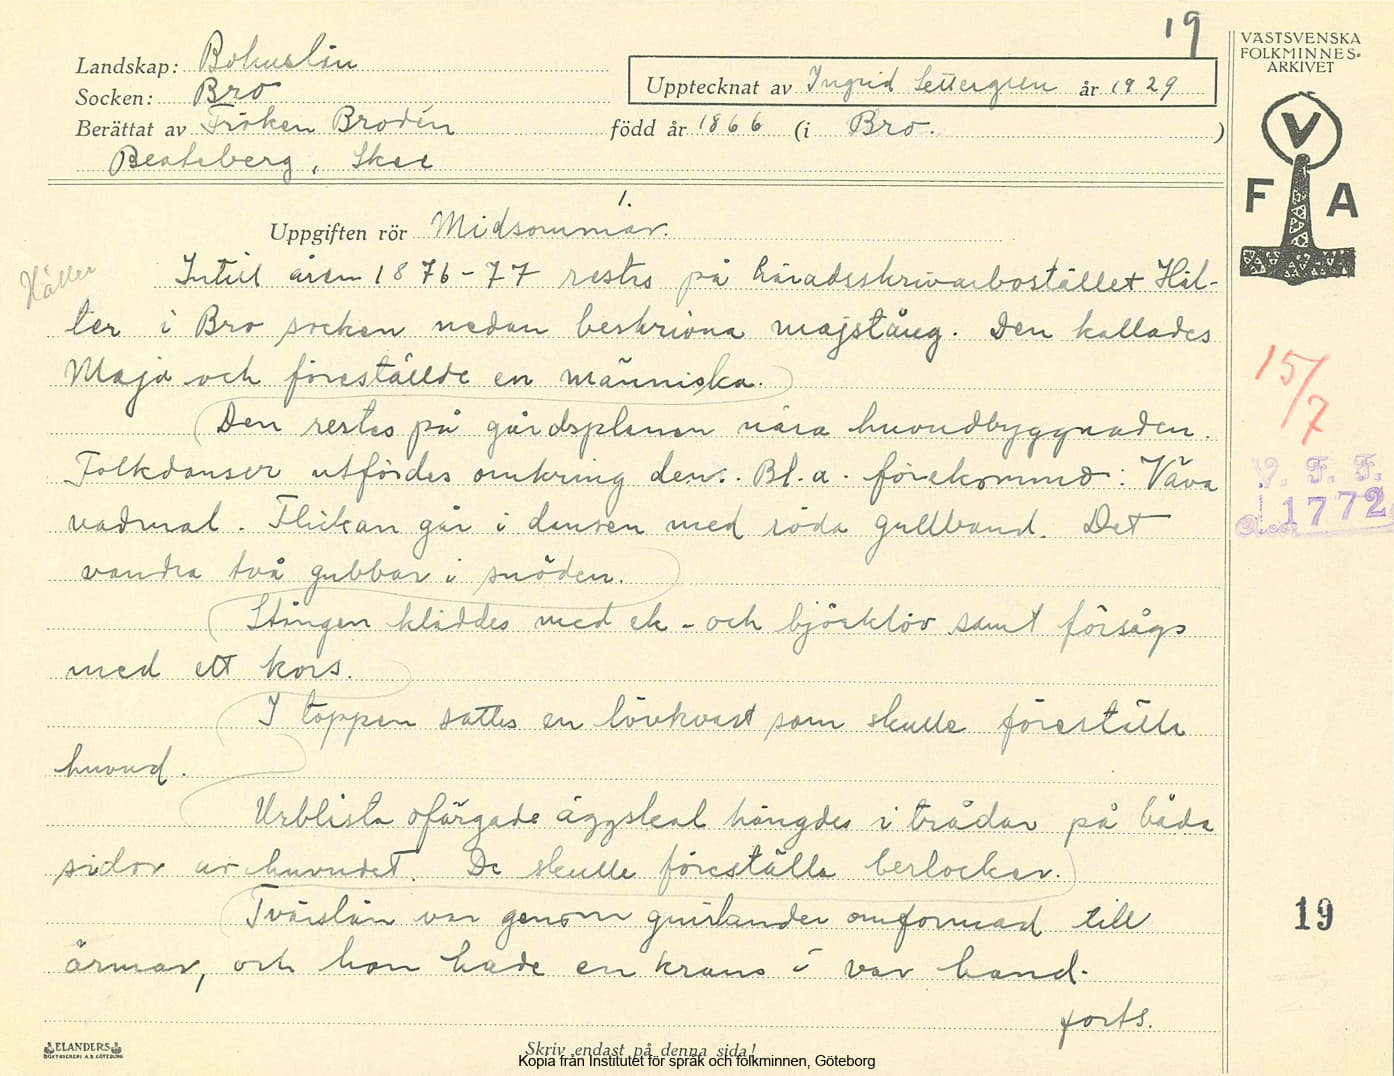 19
Landskap: Bohuslän
Socken: Bro
Upptecknat av Ingrid Settergren år 1929
Berättat av Fröken Brodén född år 1866 (i Bro. )
Beateberg, Skee
VÄSTSVENSKA
FOLKMINNES-
ARKIVET
V
F A
1.
Uppgiften rör Midsommar.
Häller
Intill åren 1876-77 restes på häradsskrivarbostället Häl-
ler i Bro socken nedan beskrivna majstång. Den kallades
Maja och föreställde en människa.
Den restes på gårdsplanen nära huvudbyggnaden.
Folkdanser utfördes omkring den. Bl.a. förekommo: Väva
vadmal. Flickan går i dansen med röda gullband. Det
vandra två gubbar i snöden.
Stången kläddes med ek- och björklöv samt försågs
med ett kors.
I toppen sattes en lövkvast som skulle föreställa
huvud.
Urblåsta ofärgade äggskal hängdes i trådar på båda
sidor av huvudet. De skulle föreställa berlocker.
Tvärslån var genom guirlander omformad till
ärmar, och hon hade en krans i var hand.
forts.
15/7
V. F. F.
1772
19
ELANDERS
BOKTRYCKERI A.B. GÖTEBORG
Skriv endast på denna sida!
Kopia från Institutet för språk och folkminnen, Göteborg